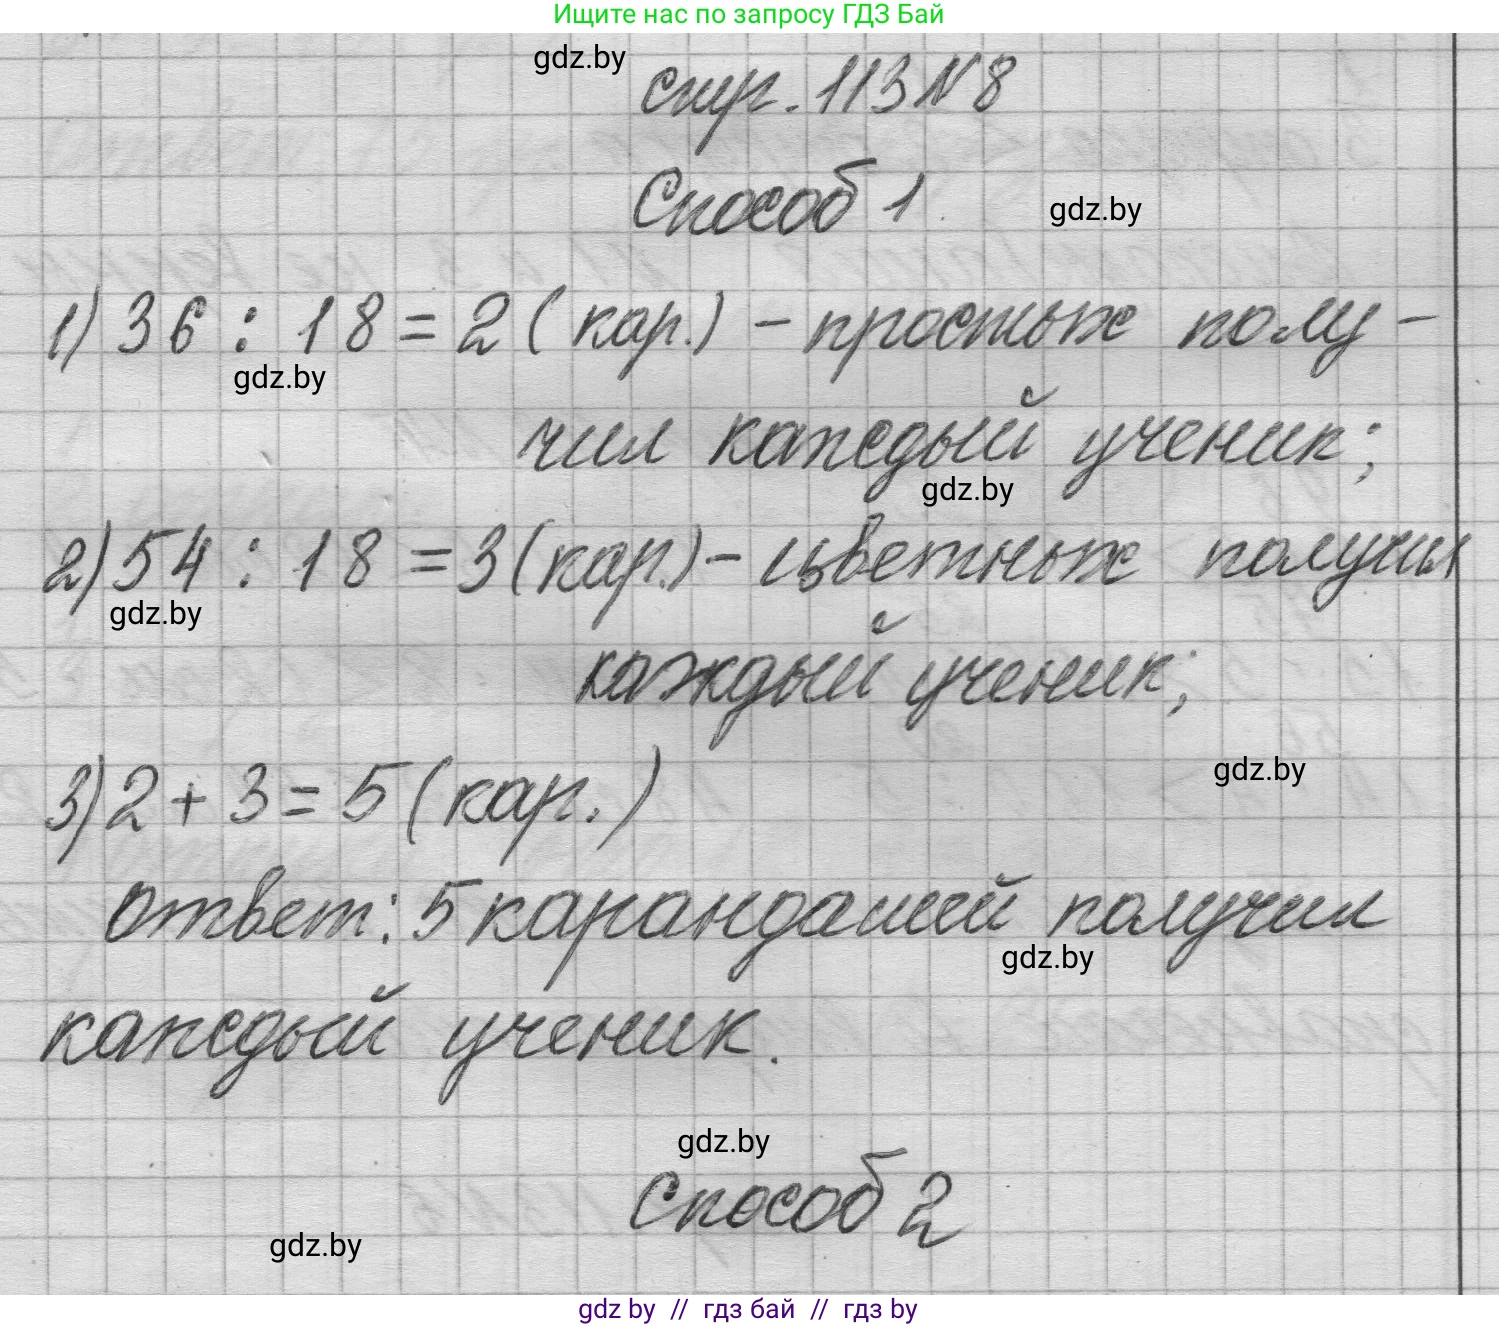 Ищите нас по запросу ГДЗ Бай
gdz.by
стр. 113 № 8
Способ 1
gdz.by
1) 36 : 18 = 2 (кар.) – простых полу-
gdz.by
чил каждый ученик;
gdz.by
2) 54 : 18 = 3 (кар.) – цветных получил
gdz.by
каждый ученик;
gdz.by
3) 2 + 3 = 5 (кар.)
Ответ: 5 карандашей получил
gdz.by
каждый ученик.
gdz.by
Способ 2
gdz.by
gdz by // гдз бай // гдз by